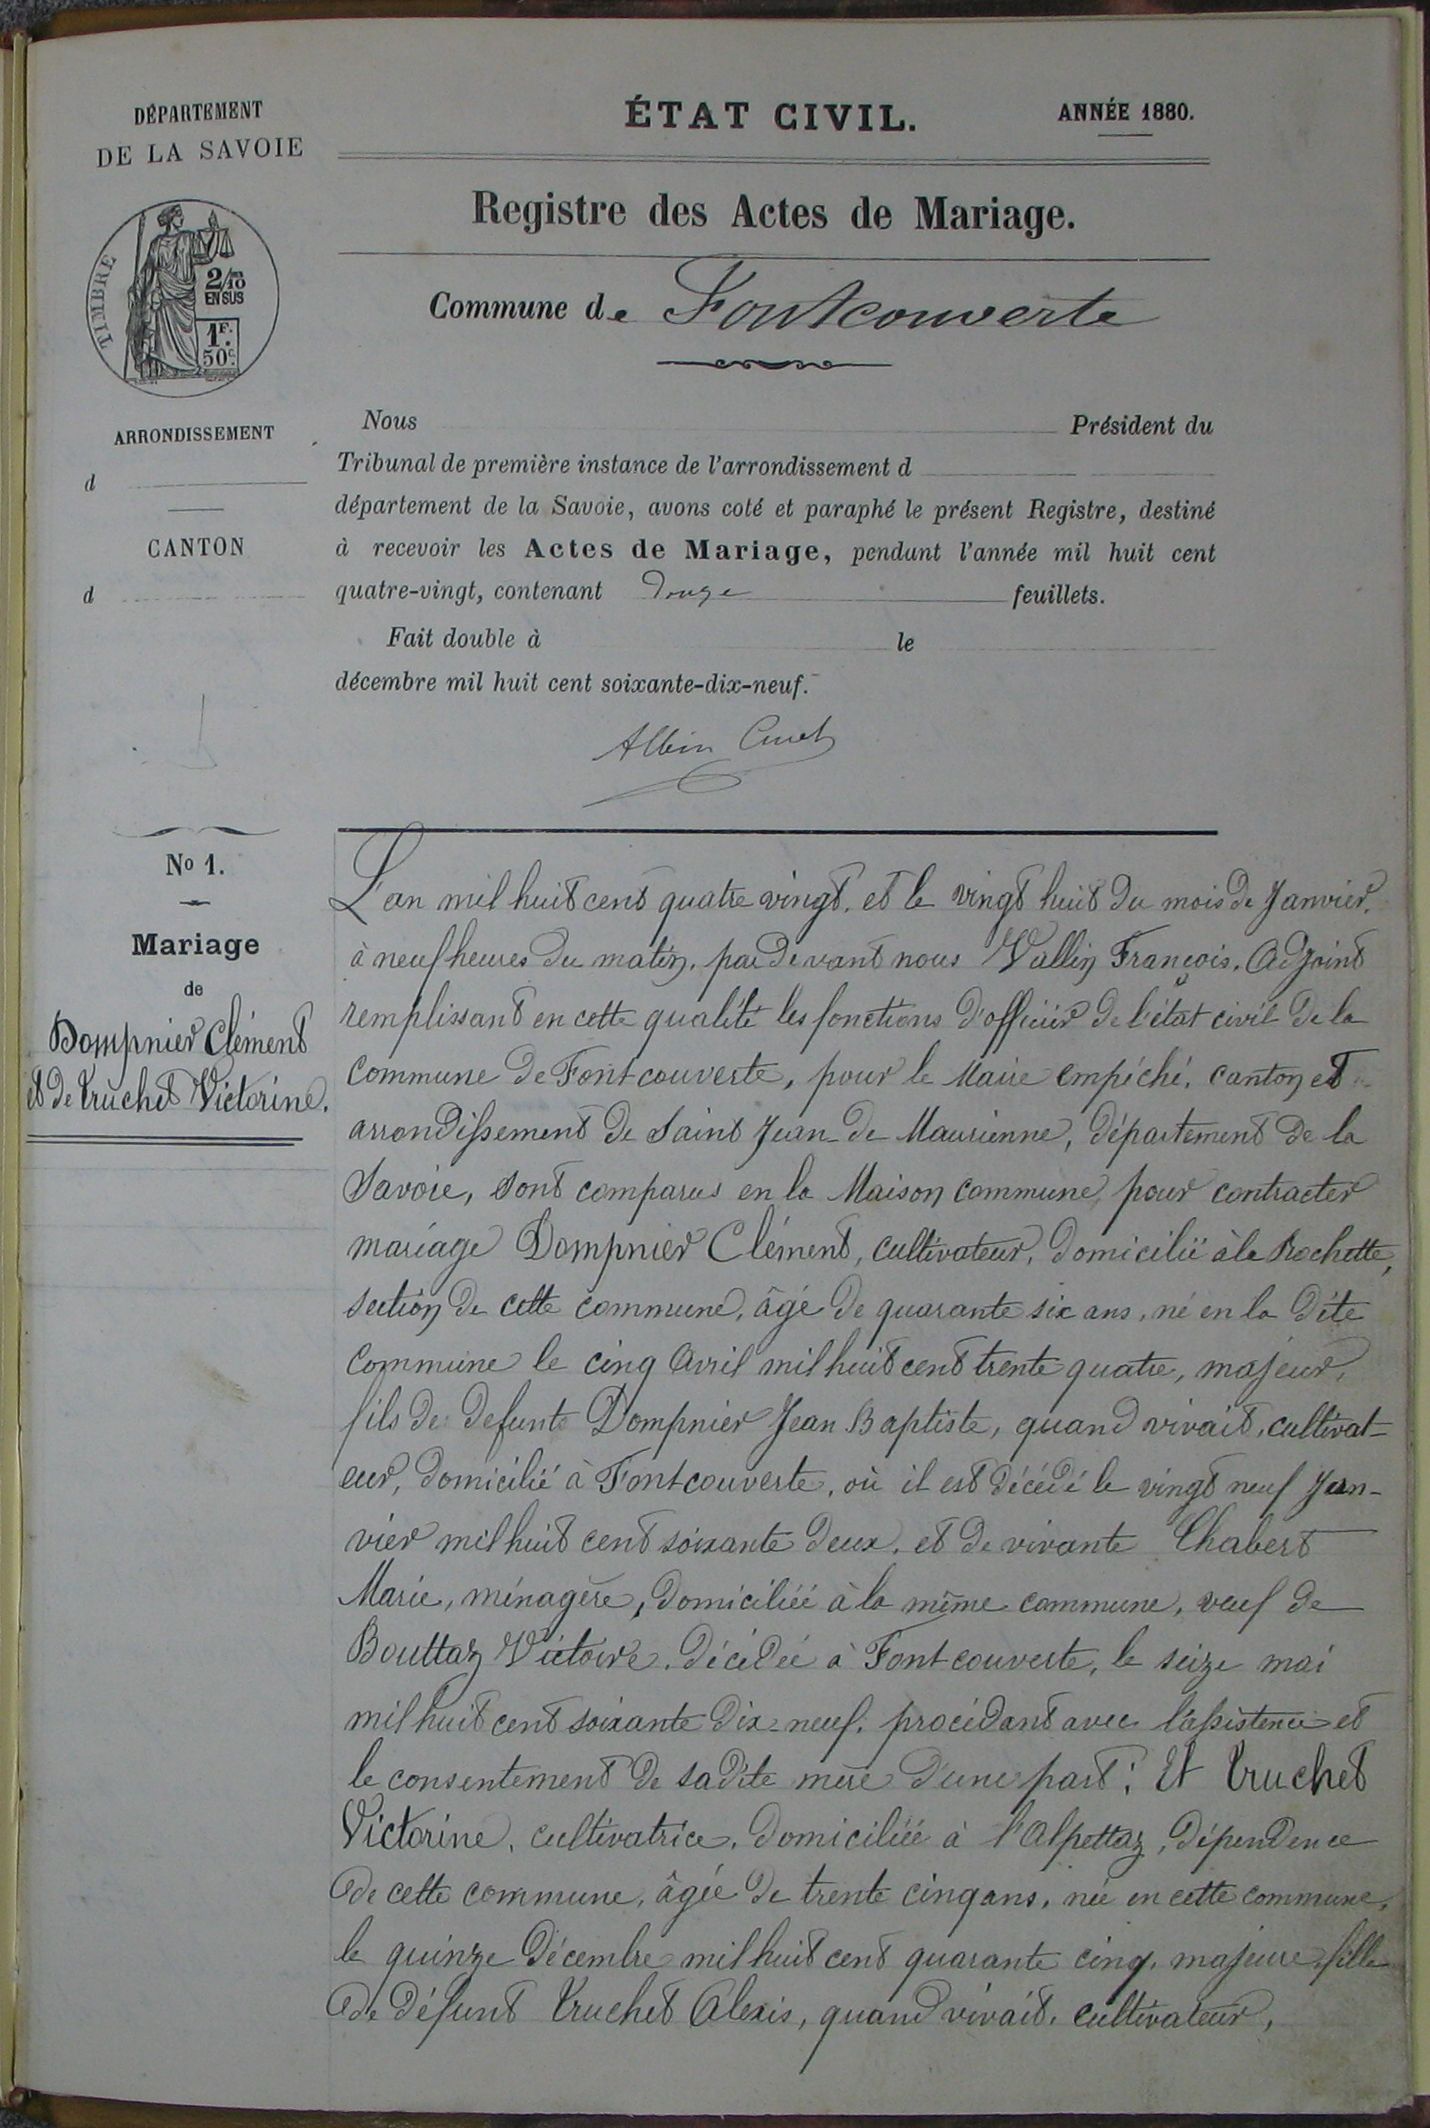 DÉPARTEMENT
DE LA SAVOIE
TIMBRE
2/10
EN SUS
1F.
50c.
ARRONDISSEMENT
d
CANTON
d
ÉTAT CIVIL.
ANNÉE 1880.
Registre des Actes de Mariage.
Commune de Fontcouverte
Nous Président du
Tribunal de première instance de l'arrondissement d
département de la Savoie, avons coté et paraphé le présent Registre, destiné
à recevoir les Actes de Mariage, pendant l'année mil huit cent
quatre-vingt, contenant Douze feuillets.
Fait double à le
décembre mil huit cent soixante-dix-neuf.
Albin
No 1.
Mariage
de
Dompnier Clément
et de Truchet Victorine.
L'an mil huit cent quatre vingt, et le vingt huit du mois de Janvier,
à neuf heures du matin, par devant nous Vallin François, Adjoint
remplissant en cette qualité les fonctions d'officier de l'état civil de la
commune de Fontcouverte, pour le Maire empéché, canton et
arrondissement de Saint Jean de Maurienne, département de la
Savoie, sont comparus en la Maison commune, pour contracter
mariage Dompnier Clément, cultivateur, domicilié à la Rochette,
section de cette commune, âgé de quarante six ans, né en la dite
commune le cinq Avril mil huit cent trente quatre, majeur,
fils de defunte Dompnier Jean Baptiste, quand vivait, cultivat-
eur, domicilié à Fontcouverte, où il est décédé le vingt neuf Jan-
vier mil huit cent soixante deux, et de vivante Chabert
Marie, ménagère, domiciliée à la même commune, veuf de
Bouttaz Victoire, décédée à Fontcouverte, le seize mai
mil huit cent soixante dix-neuf, procédant avec l'assistence et
le consentement de sadite mère d'une part; Et Truchet
Victorine, cultivatrice, domiciliée à l'Alpettaz, dépendence
de cette commune, âgée de trente cinq ans, née en cette commune,
le quinze Décembre mil huit cent quarante cinq, majeure, fille
de défunt Truchet Alexis, quand vivait, cultivateur,